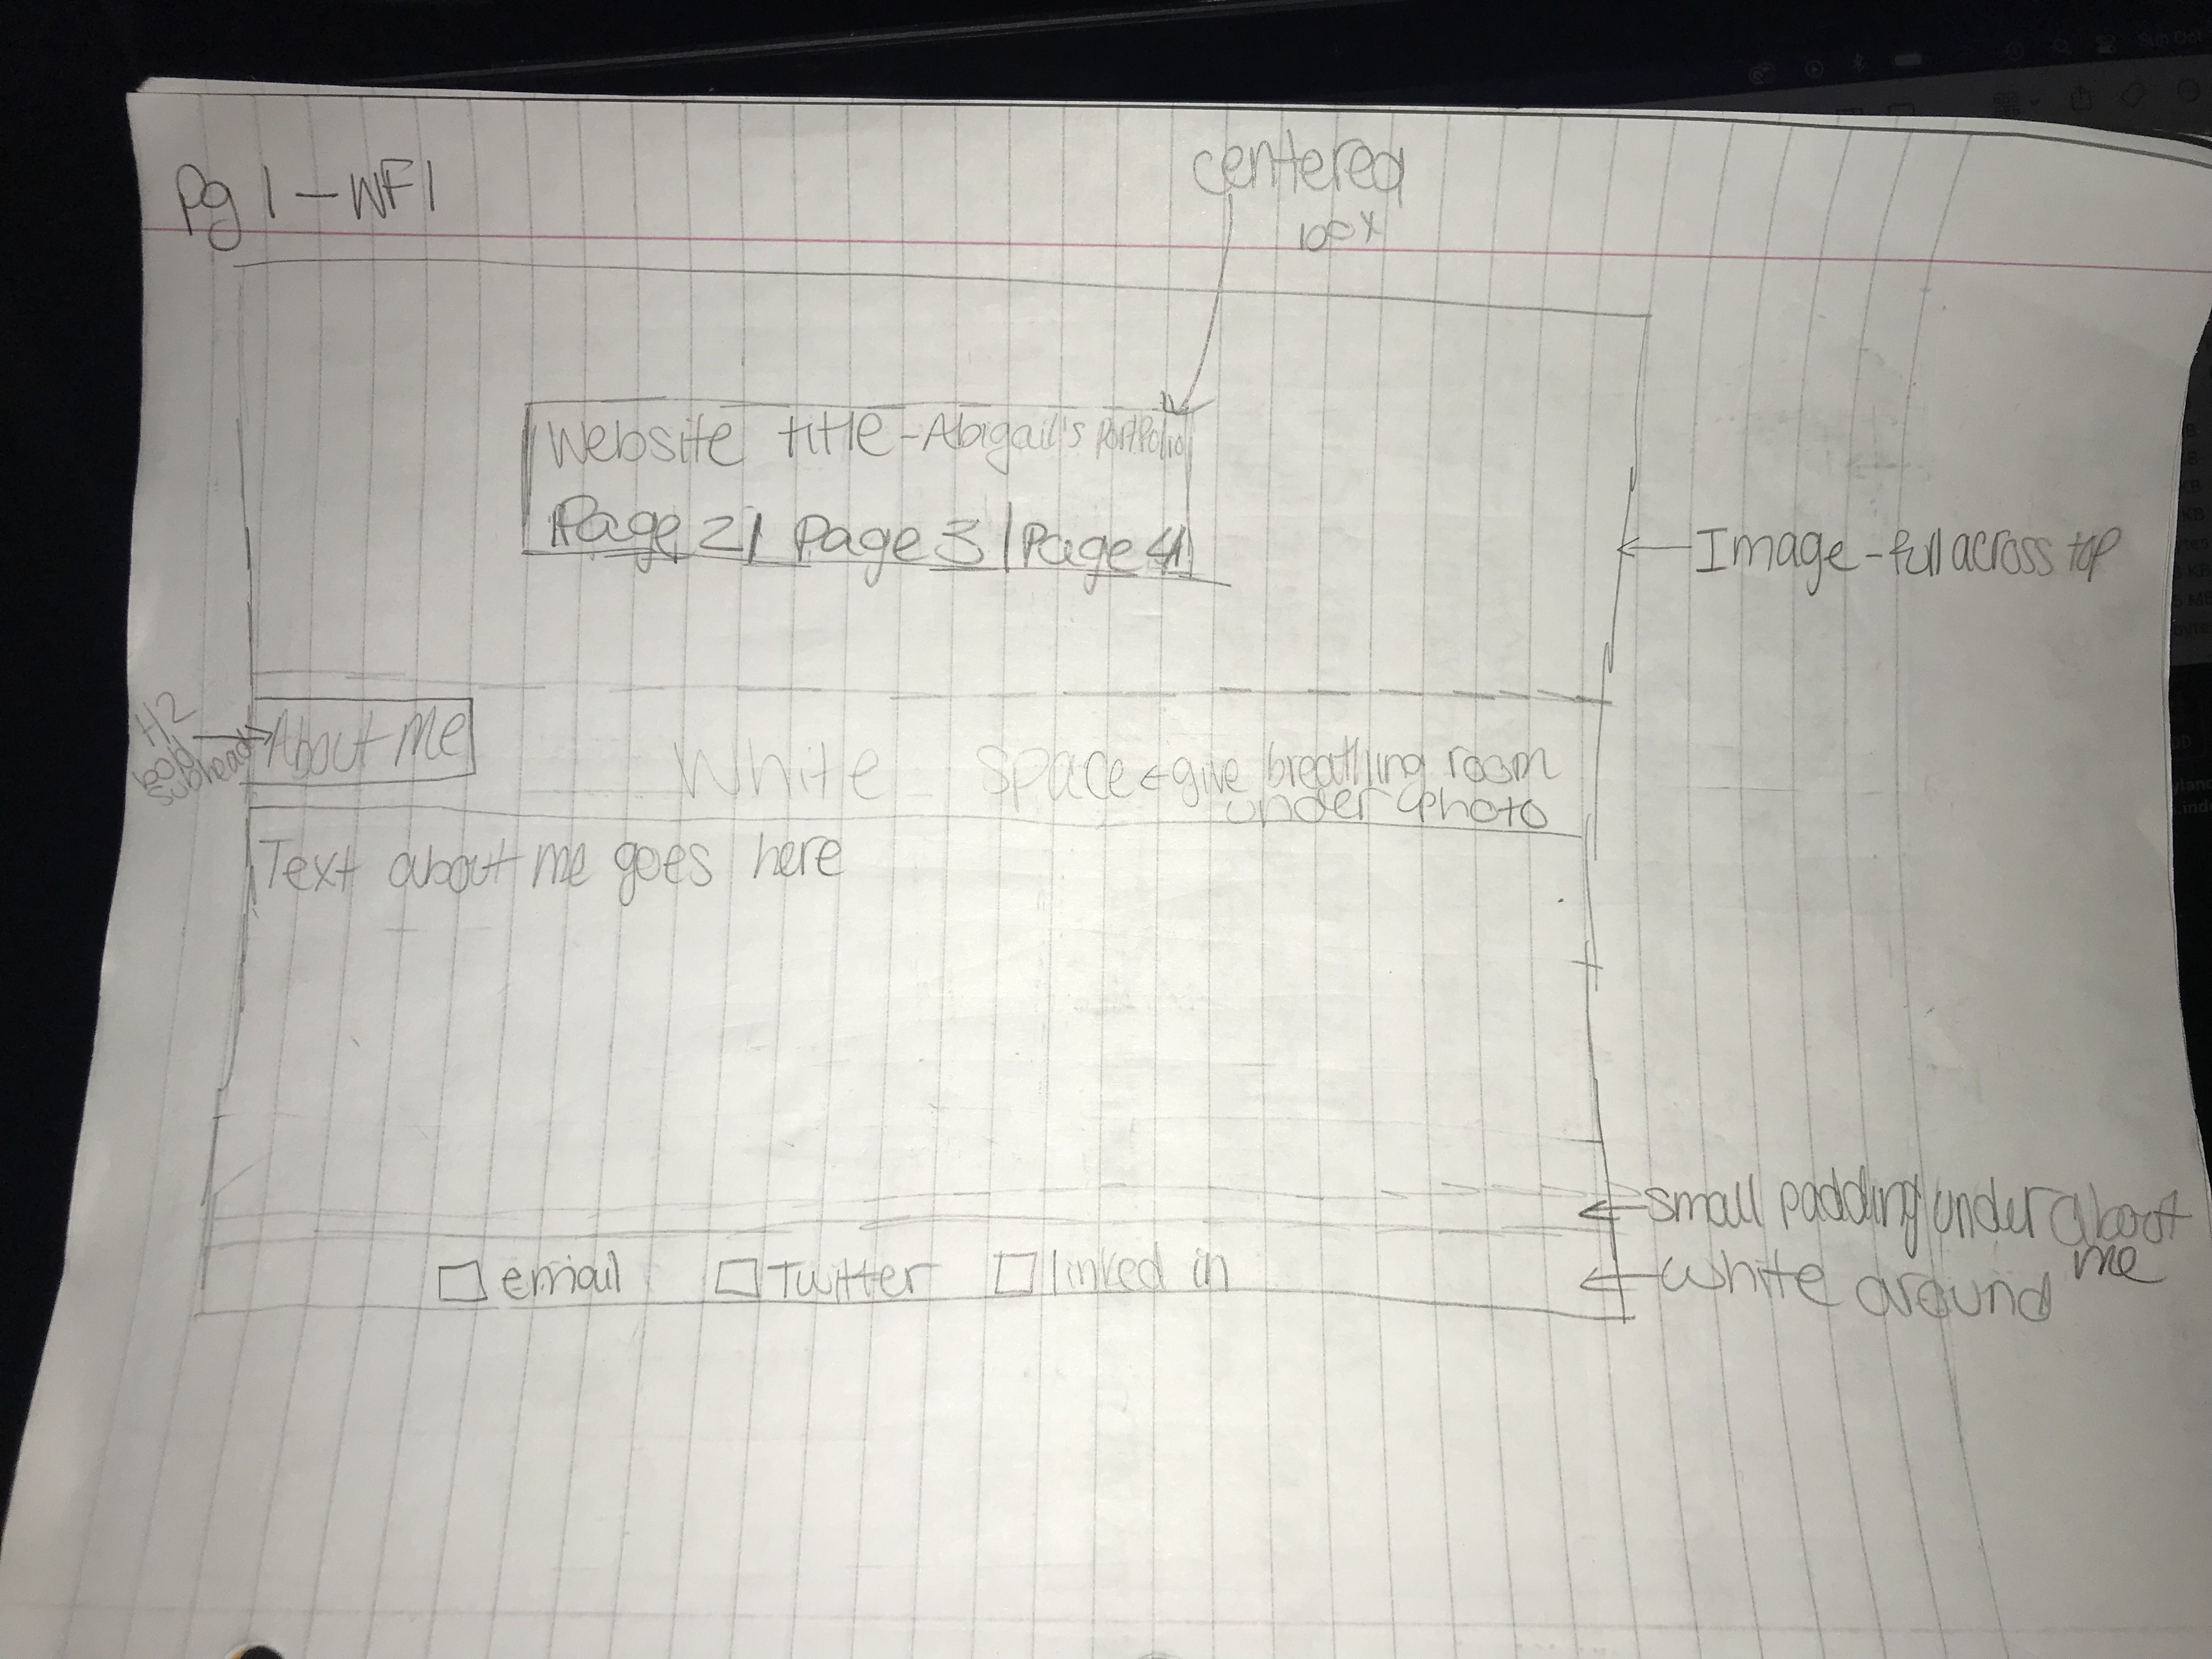 Pg 1 - WF1
centered
box
Website title - Abigail's Portfolio
Page 2 | Page 3 | Page 4
Image - full across top
H2
bold
subhead
About Me
White space ← give breathing room
under photo
Text about me goes here
small padding under about
me
white around
email Twitter linked in
Sun Oct